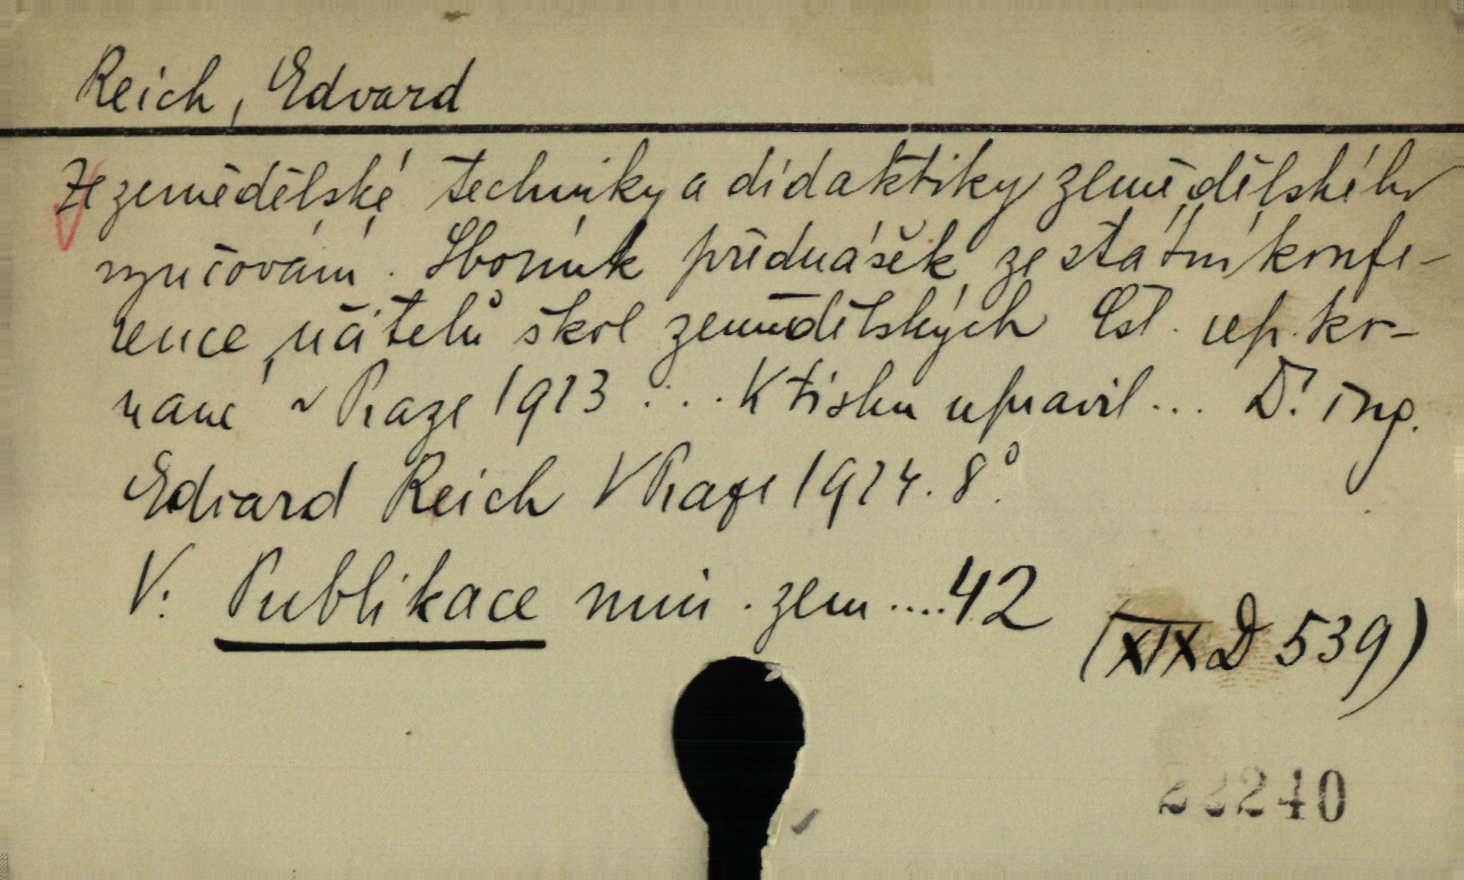 Reich, Edvard
Ze zemědělské techniky a didaktiky zemědělského
vyučování. Sborník přednášek ze státní konfe-
rence učitelů škol zemědělských Čsl. rep. ko-
nané v Praze 1923 ... K tisku upravil ... Dr. ing.
Edvard Reich V Praze 1924. 8°.
V: Publikace min. zem .... 42
(XIX D 539)
240